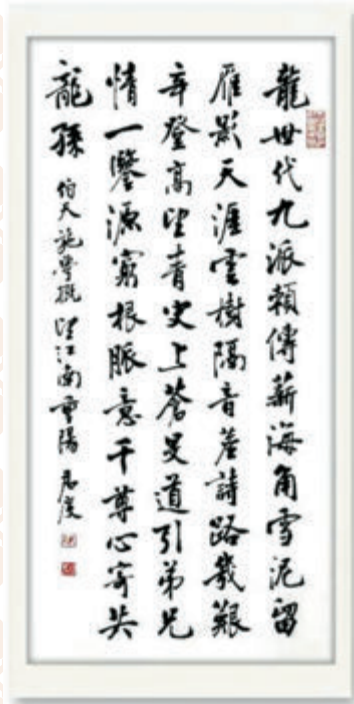 龍世代九派賴傳薪海角雪泥留
雁影天涯雲樹隔音差詩路幾艱
辛登高望青史上蒼旻道引弟兄
情一鑒源窮根脈意千尊心寄共
龍孫 伯天施學概望江南重陽